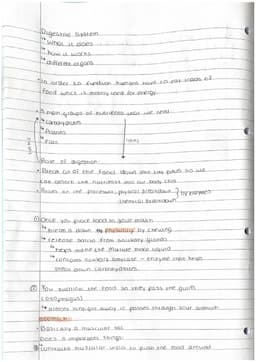 Digestive System
↳ What it does
↳ how it works
↳ different organs
• In order to function humans have to eat loads of
food which is mainly used for energy.
• 3 main groups of nutrients
↳ carbohydrates
↳ Proteins
↳ Fats
Role of digestion
• Break up the food down into small parts so we
can absorb the nutrients into our body cells
physical breakdown
chemical breakdown
by enzymes
① Once you place food in your mouth
↳ broken down physically by chewing
↳ release saliva from salivary glands
↳ helps make the mixture more liquid
↳ contains salivary amylase - enzyme that helps
break down carbohydrates
② You swallow the food so they pass the gullet
(oesophagus)
↳ almost straight away it passes through your
stomach
• Basically a muscular sac
Does 3 important things
to push the food around